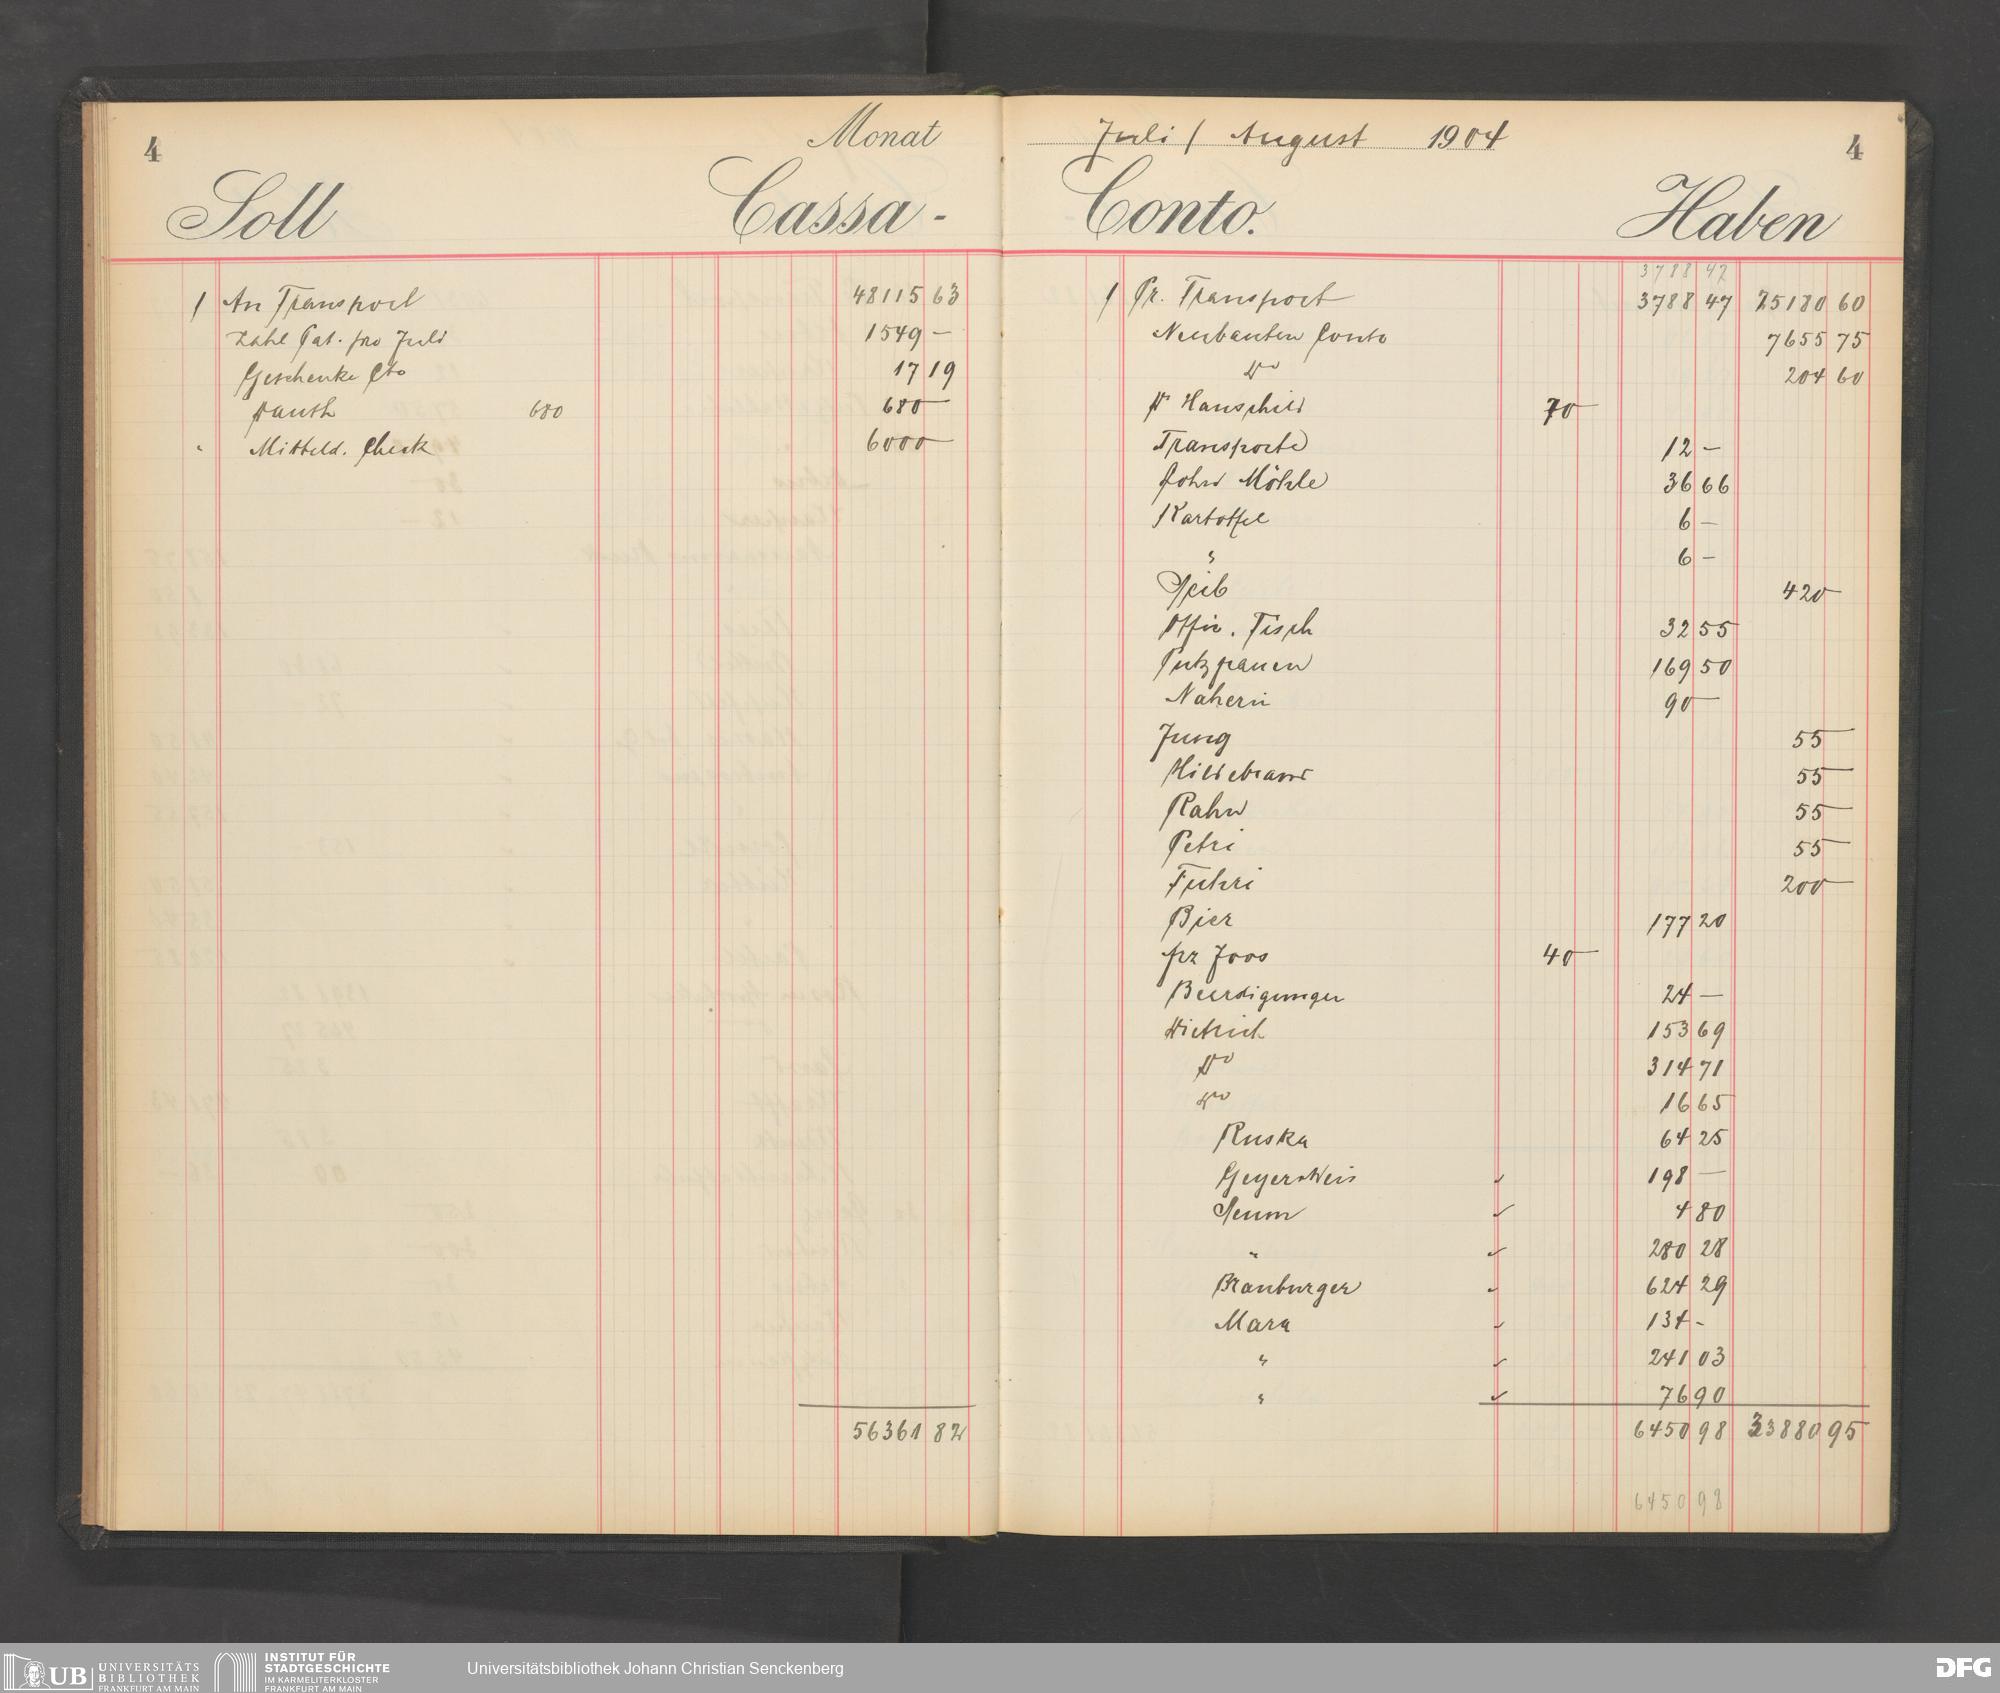 4
Monat
Soll
Cassa-
1 An Transport 48115 63
Zahl Pat. pro Juli 1549 —
Geschenke Cto 17 19
Dauth 680 680 —
" Mitteld. Check 6000 —
56361 82
Juli / August 1904
4
Conto.
Haben
3788 47
1 Pr. Transport 3788 47 25180 60
Neubauten Conto 7655 75
do 204 60
Dr Hanschild 70 —
Transporte 12 —
Möhle 36 66
Kartoffel 6 —
" 6 —
Seib 420 —
Offic. Tisch 32 55
Putzfrauen 169 50
Näherin 90 —
Jung 55 —
Hildebrand 55 —
Rahn 55 —
Petri 55 —
Fuhri 200 —
Bier 177 20
Joos 40 —
Beerdigungen 24 —
Dietrich 153 69
do 314 71
do 16 65
Ruska 64 25
Geyersweis 198 —
Seum 4 80
" 280 28
Branburger 624 29
Mara 134 -
" 241 03
" 76 90
6450 98 33880 95
6450 98
UB UNIVERSITÄTS
BIBLIOTHEK
FRANKFURT AM MAIN
INSTITUT FÜR
STADTGESCHICHTE
IM KARMELITERKLOSTER
FRANKFURT AM MAIN
Universitätsbibliothek Johann Christian Senckenberg
DFG